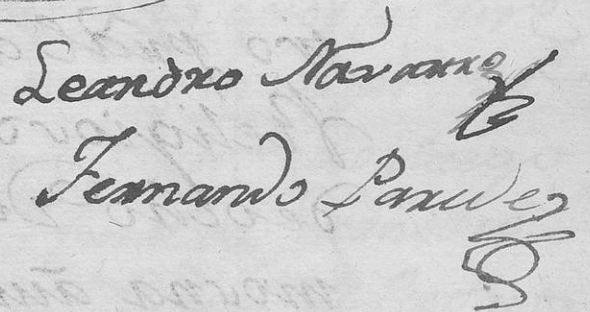 Leandro Navarro
Fernando Paredez